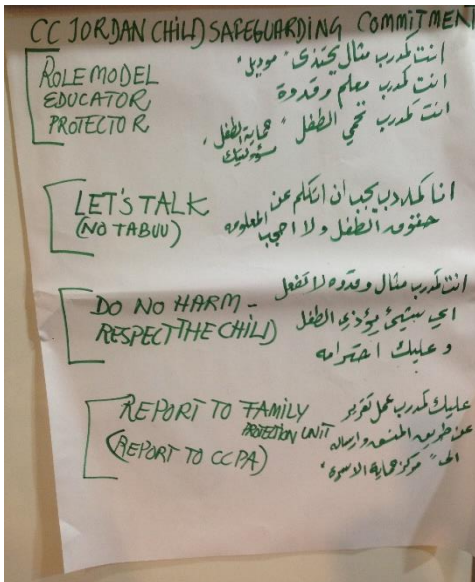 CC JORDAN CHILD SAFEGUARDING COMMITMENT
ROLE MODEL
EDUCATOR
PROTECTOR
انت كمدرب مثال يحتذى "موديل"
انت كمدرب معلم وقدوة
انت كمدرب تحمي الطفل "حماية الطفل
مسؤوليتك"
LET'S TALK
(NO TABUU)
انا كمدرب يجب ان اتكلم عن
حقوق الطفل ولا احجب المعلومه
DO NO HARM -
RESPECT THE CHILD
انت كمدرب مثال وقدوه لا تفعل
اي شيئ يؤذي الطفل
و عليك احترامه
REPORT TO FAMILY
PROTECTION UNIT
(REPORT TO CCPA)
عليك كمدرب عمل تقرير
عن طريق المنسق وارساله
الى "مركز حماية الاسرة"